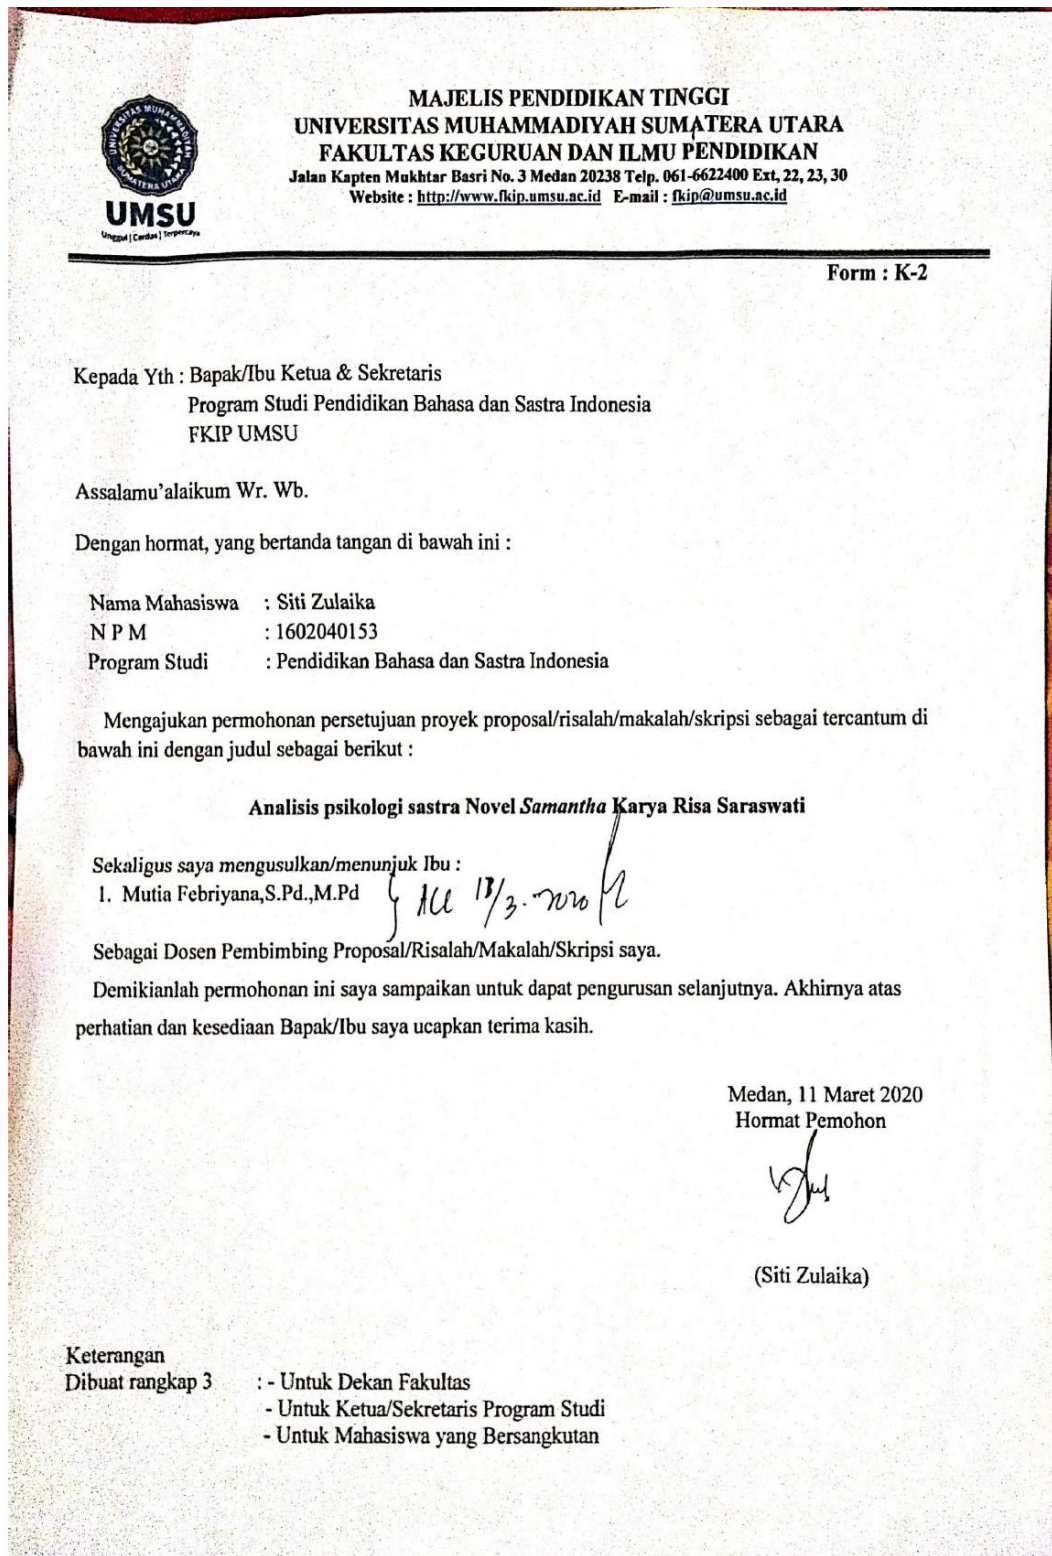 MAJELIS PENDIDIKAN TINGGI
UNIVERSITAS MUHAMMADIYAH SUMATERA UTARA
FAKULTAS KEGURUAN DAN ILMU PENDIDIKAN
Jalan Kapten Mukhtar Basri No. 3 Medan 20238 Telp. 061-6622400 Ext, 22, 23, 30
Website : http://www.fkip.umsu.ac.id E-mail : fkip@umsu.ac.id
UNIVERSITAS MUHAMMADIYAH
SUMATERA UTARA
UMSU
Unggul | Cerdas | Terpercaya
Form : K-2
Kepada Yth : Bapak/Ibu Ketua & Sekretaris
Program Studi Pendidikan Bahasa dan Sastra Indonesia
FKIP UMSU
Assalamu’alaikum Wr. Wb.
Dengan hormat, yang bertanda tangan di bawah ini :
Nama Mahasiswa : Siti Zulaika
N P M : 1602040153
Program Studi : Pendidikan Bahasa dan Sastra Indonesia
Mengajukan permohonan persetujuan proyek proposal/risalah/makalah/skripsi sebagai tercantum di
bawah ini dengan judul sebagai berikut :
Analisis psikologi sastra Novel Samantha Karya Risa Saraswati
Sekaligus saya mengusulkan/menunjuk Ibu :
1. Mutia Febriyana,S.Pd.,M.Pd
Sebagai Dosen Pembimbing Proposal/Risalah/Makalah/Skripsi saya.
Demikianlah permohonan ini saya sampaikan untuk dapat pengurusan selanjutnya. Akhirnya atas
perhatian dan kesediaan Bapak/Ibu saya ucapkan terima kasih.
Medan, 11 Maret 2020
Hormat Pemohon
(Siti Zulaika)
Keterangan
Dibuat rangkap 3 : - Untuk Dekan Fakultas
- Untuk Ketua/Sekretaris Program Studi
- Untuk Mahasiswa yang Bersangkutan